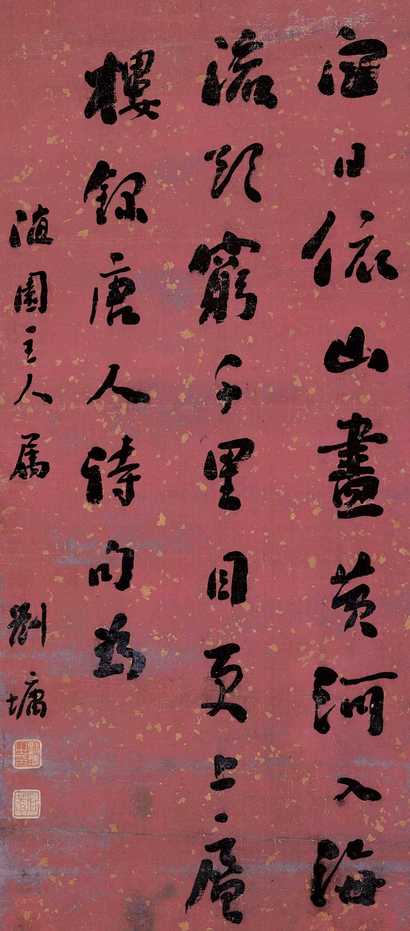 白日依山盡黃河入海
流欲窮千里目更上一層
樓錄唐人詩句為
隨園主人屬 劉墉